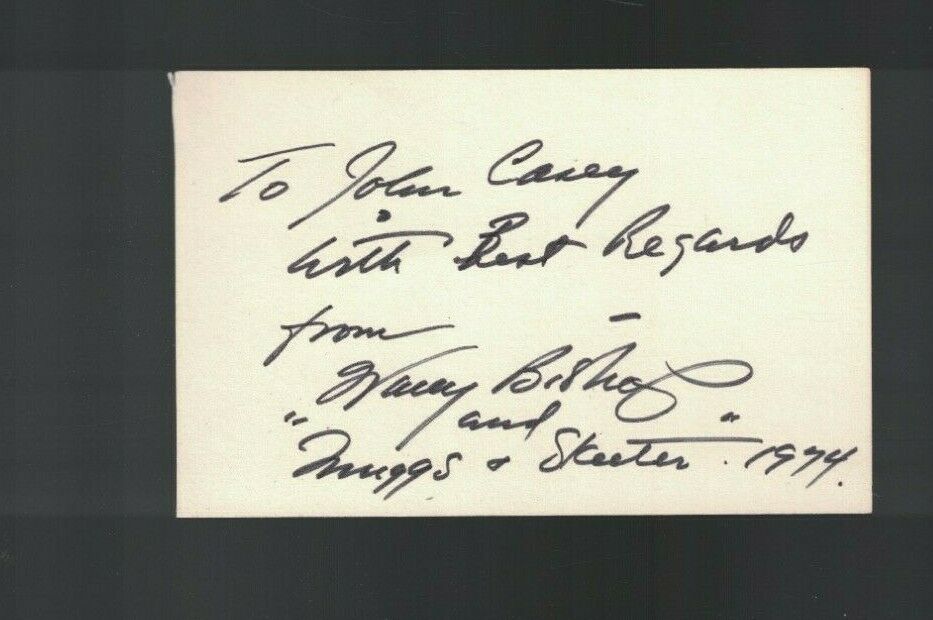 To John Casey
with Best Regards
from -
Wally Bishop
and
"Muggs & Skeeter". 1974.